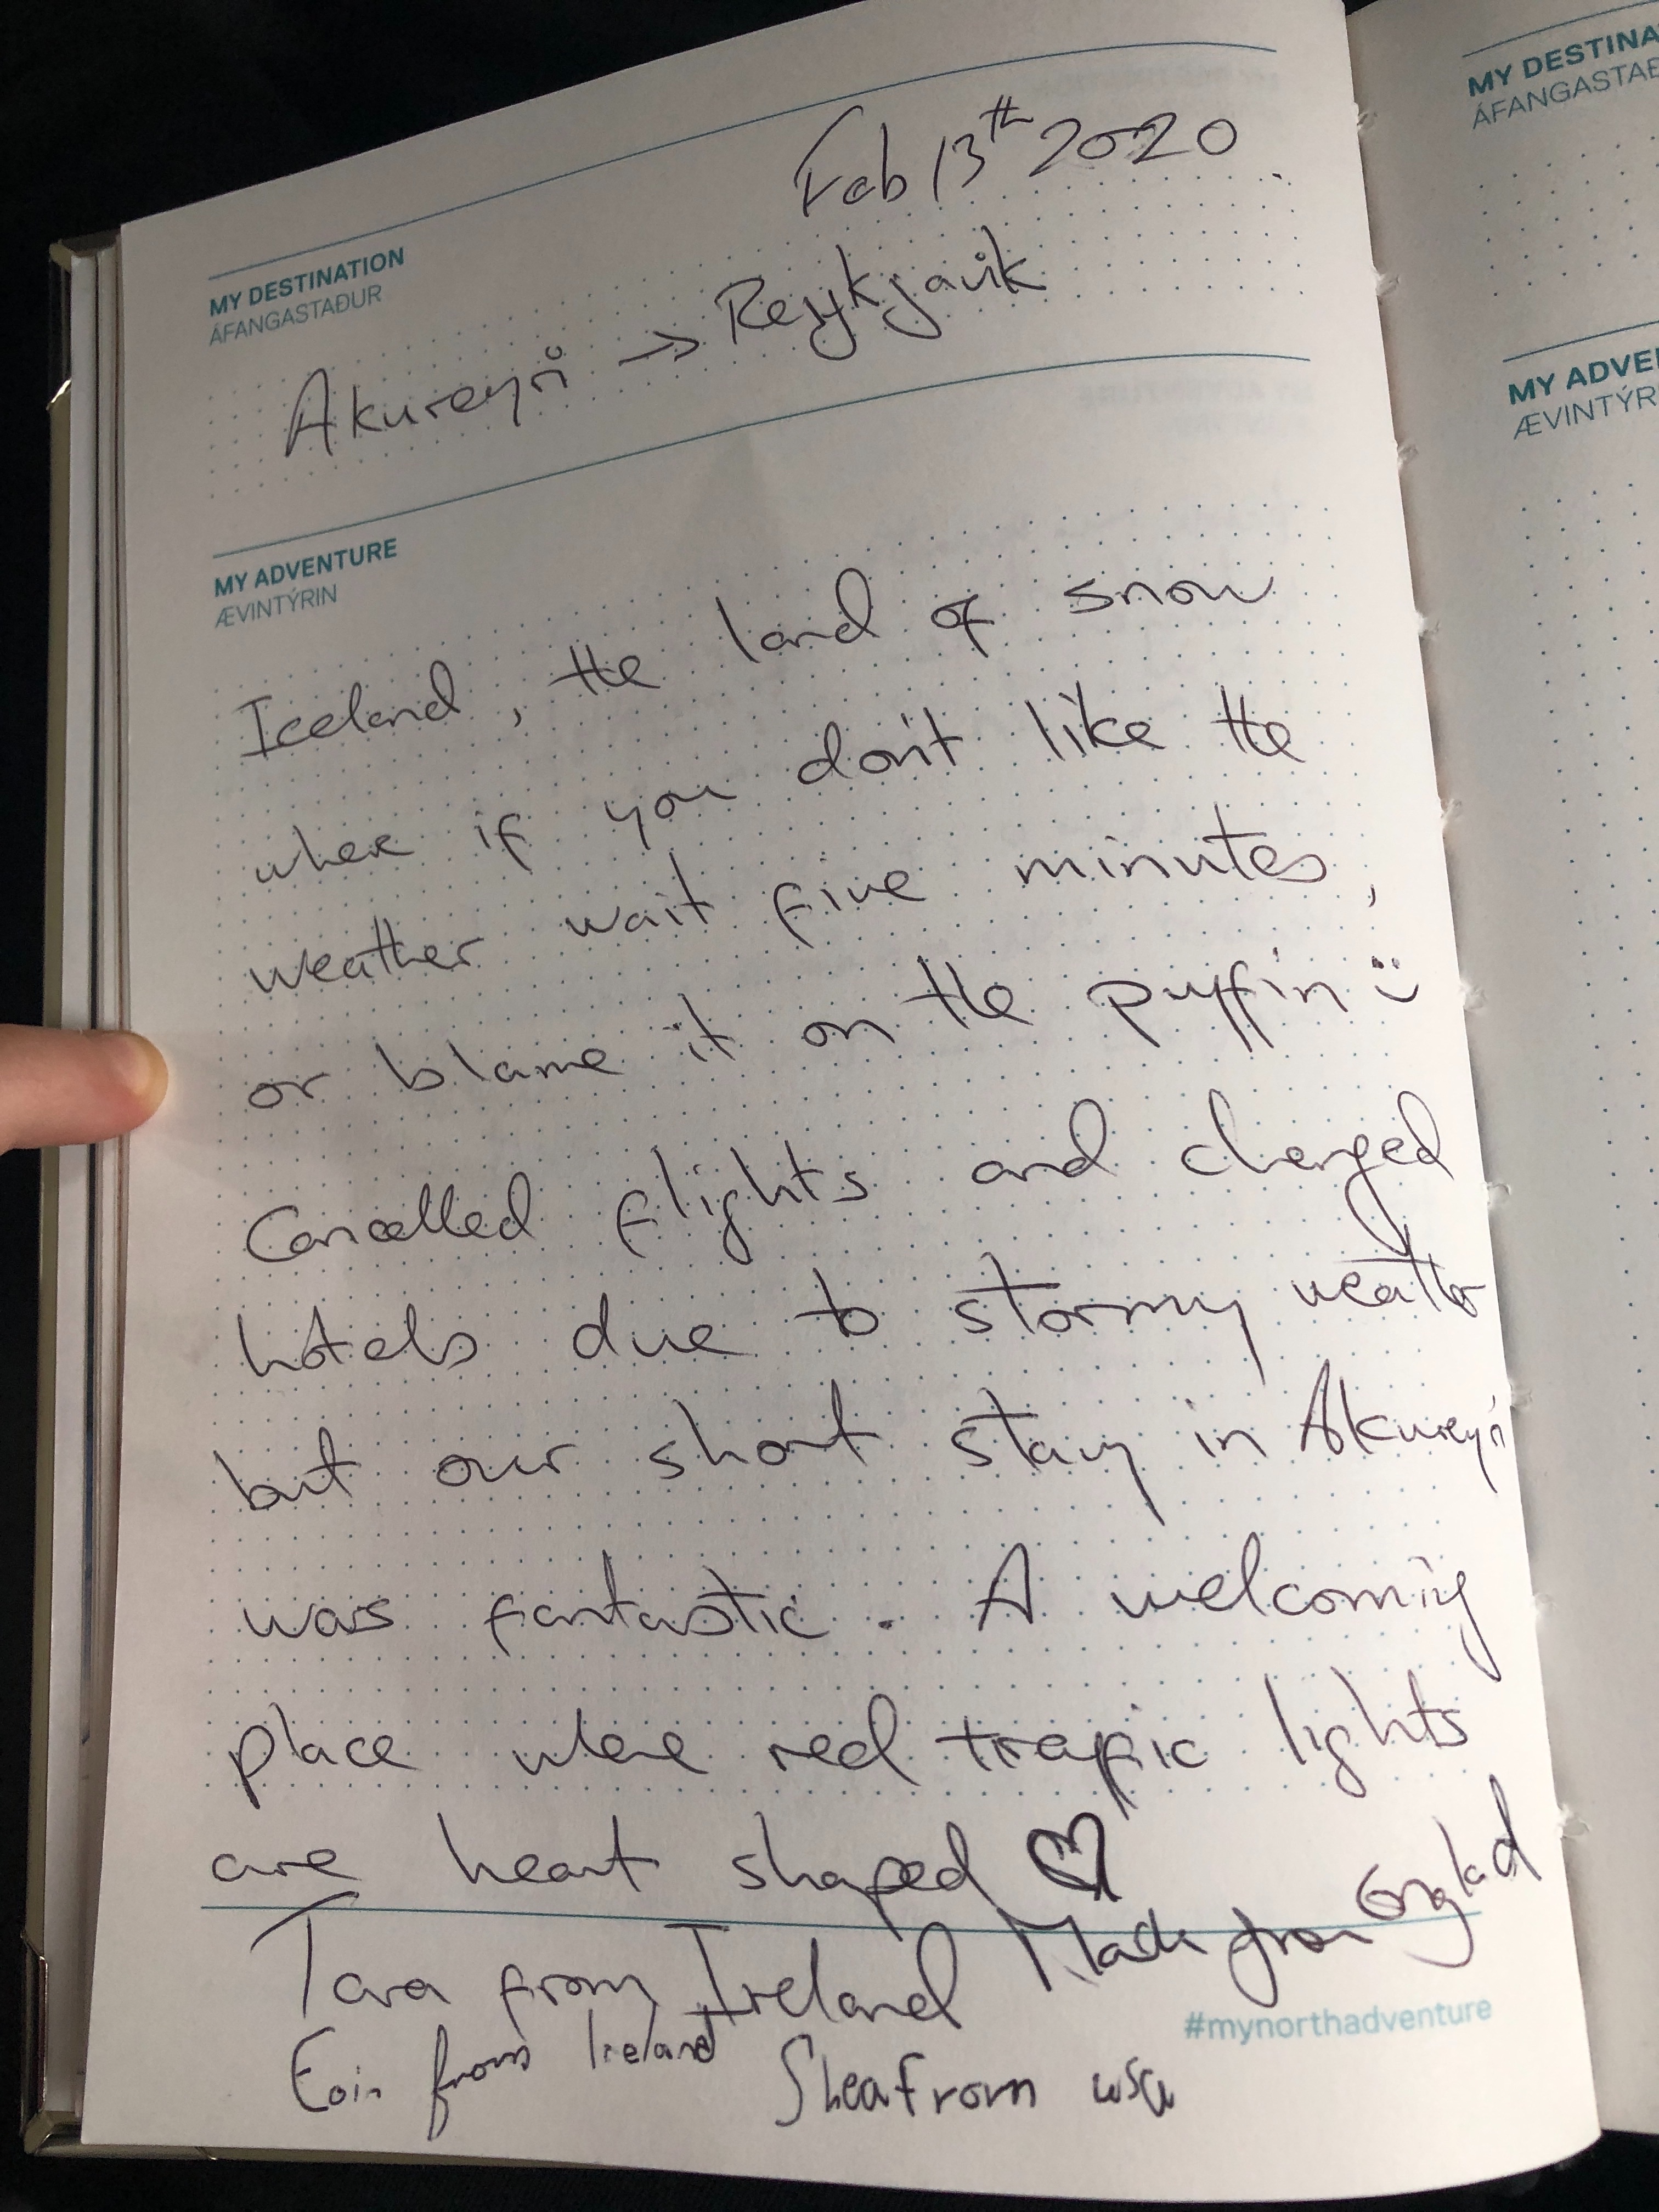 Feb 13th 2020
MY DESTINATION
ÁFANGASTAÐUR
Akureyri → Reykjavik
MY ADVENTURE
ÆVINTÝRIN
Iceland, the land of snow
where if you don't like the
weather wait five minutes,
or blame it on the puffin :)
Cancelled flights and changed
hotels due to stormy weather
but our short stay in Akureyri
was fantastic. A welcoming
place where red traffic lights
are heart shaped ♡
Tara from Ireland from England
Eoin from Ireland Shea from usa
#mynorthadventure
MY DESTINA
ÁFANGASTAÐ
MY ADVE
ÆVINTÝR